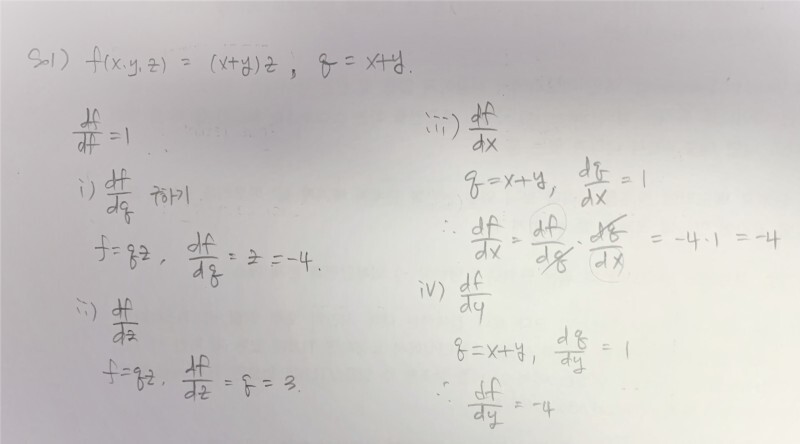 Sol) f(x.y,z) = (x+y)z, q = x+y.
df/df = 1
i) df/dq 구하기
f=qz, df/dq = z = -4.
ii) df/dz
f=qz. df/dz = q = 3.
iii) df/dx
q = x+y, dq/dx = 1
∴ df/dx = df/dq · dq/dx = -4·1 = -4
iv) df/dy
q=x+y, dq/dy = 1
∴ df/dy = -4